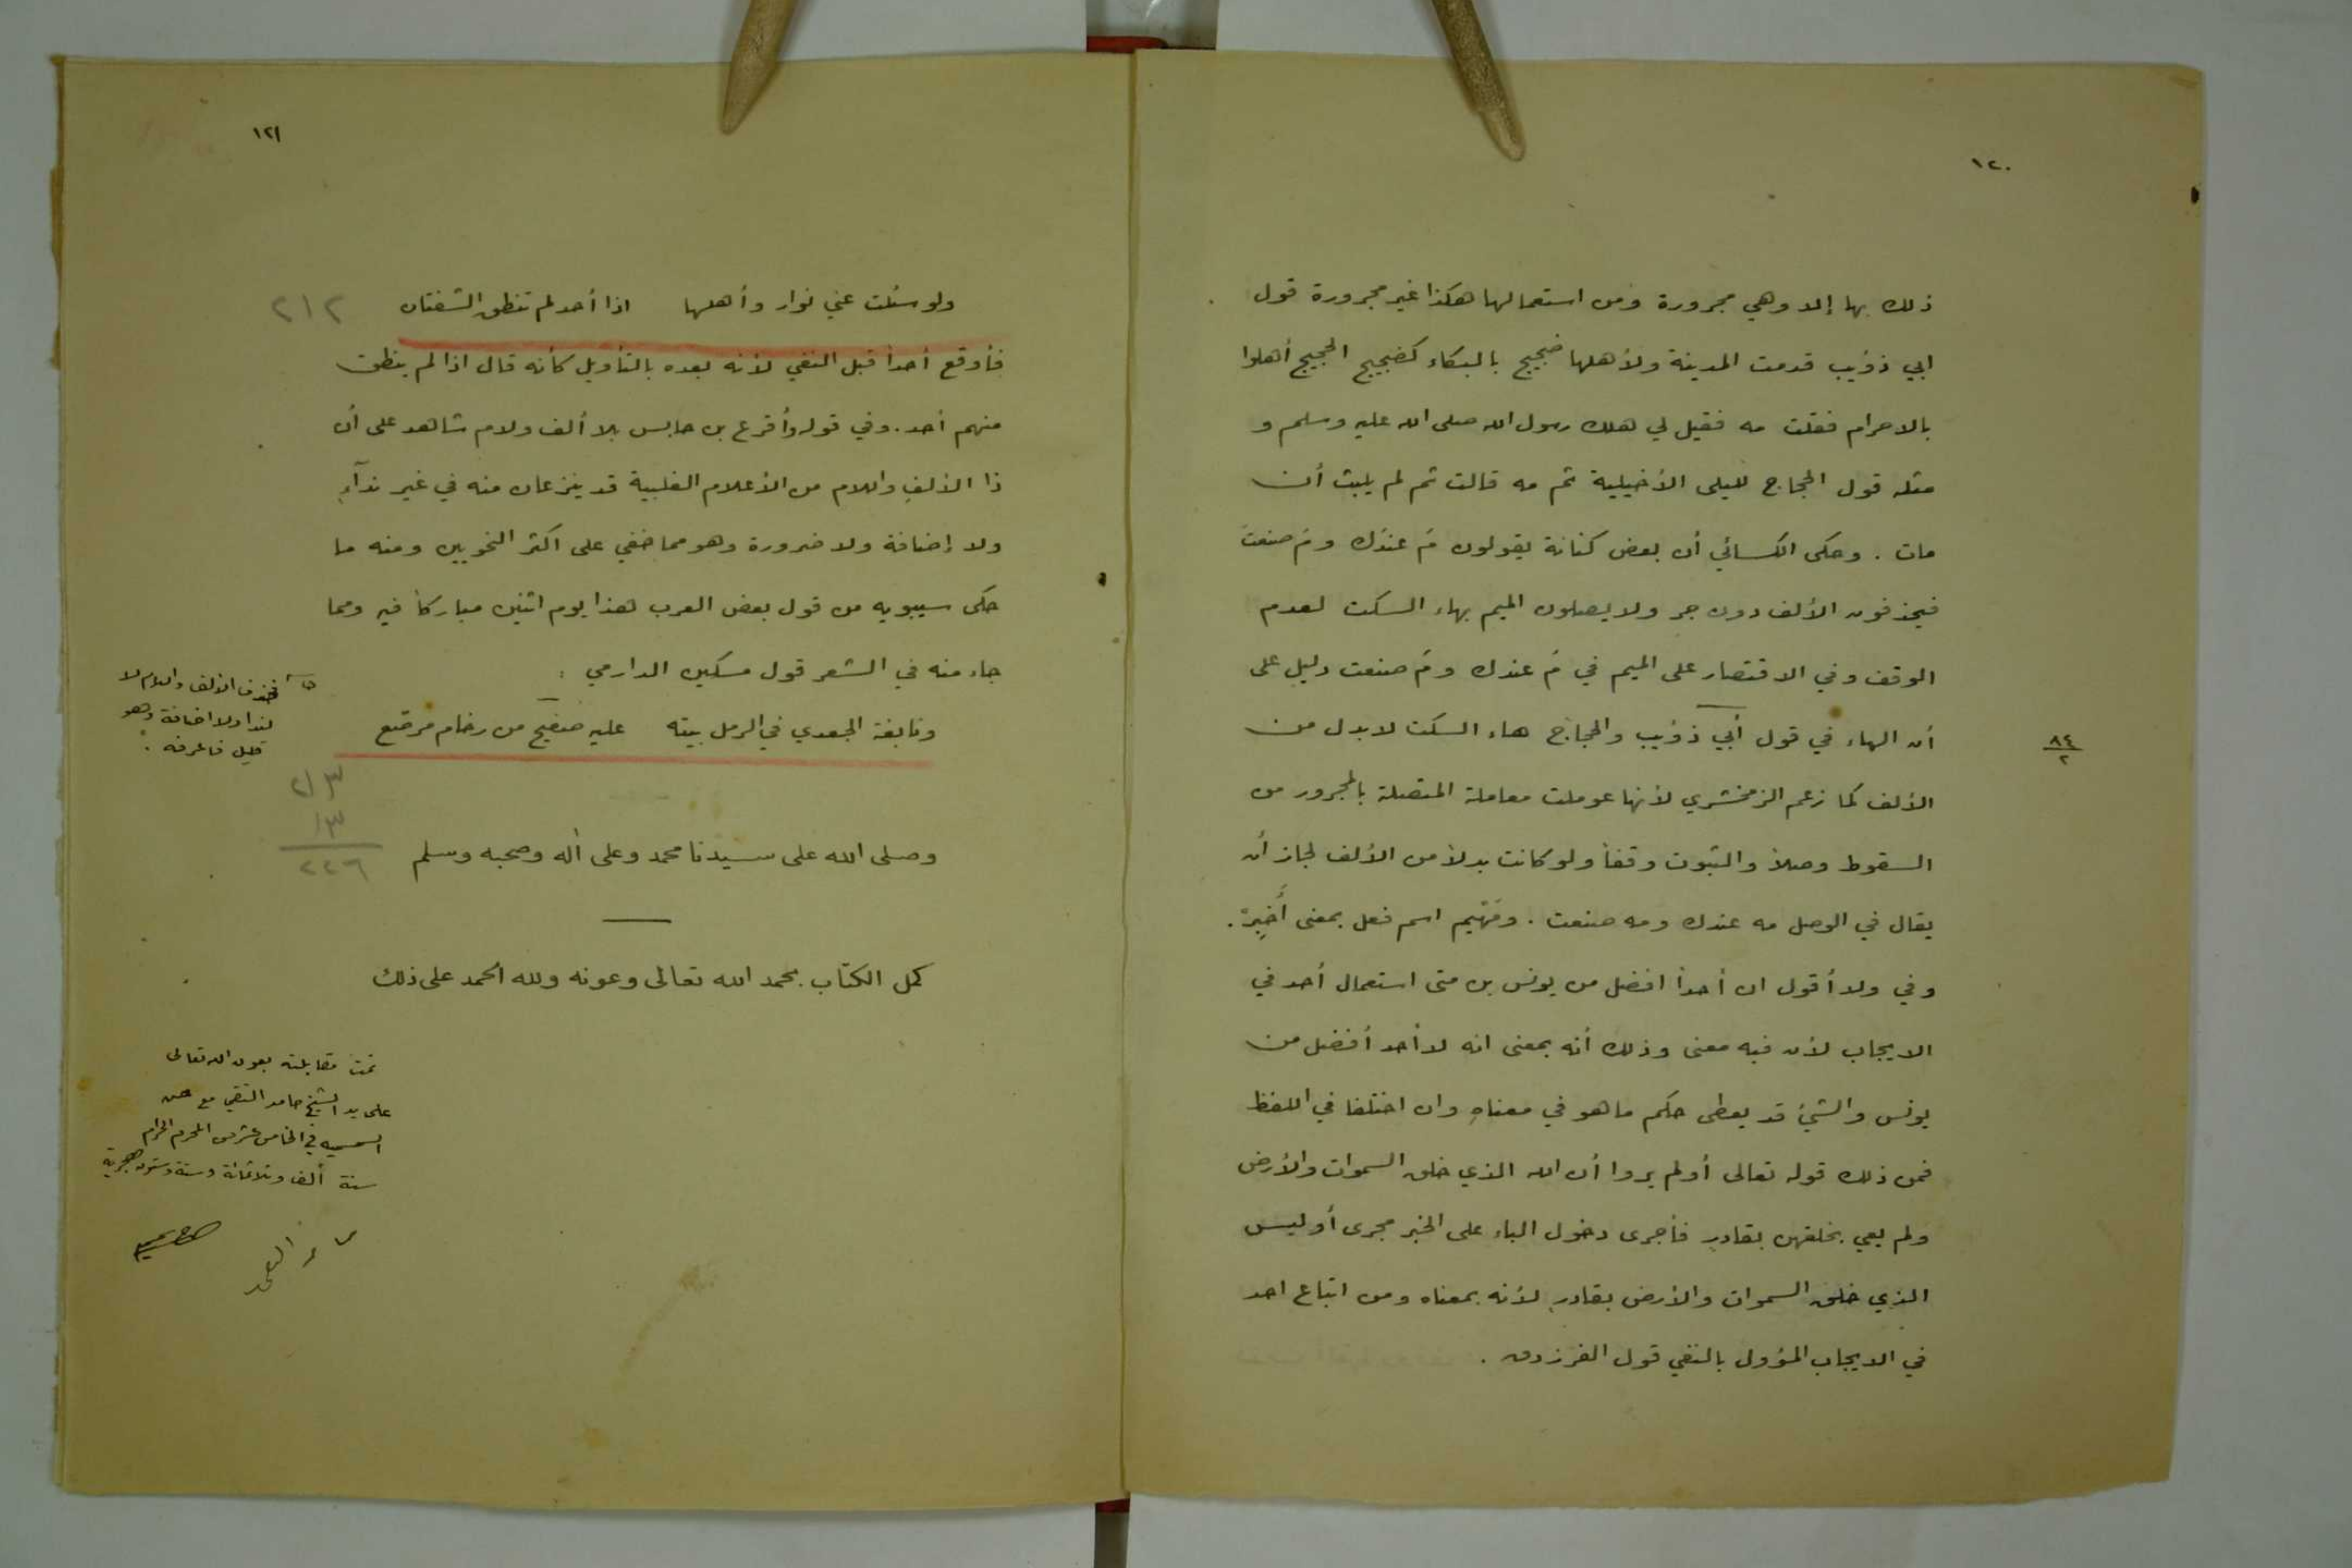 ١٢٠
ذلك بها إلا وهي مجرورة ومن استعمالها هكذا غير مجرورة قول
ابي ذؤيب قدمت المدينة ولأهلها ضجيج بالبكاء كضجيج الحجيج أهلوا
بالاحرام فقلت مه فقيل لي هلك رسول الله صلى الله عليه وسلم و
مثله قول الحجاج لليلى الأخيلية ثم مه قالت ثم لم يلبث أن
مات . وحكى الكسائي أن بعض كنانة يقولون مَ عندك ومَ صنعت
فيحذفون الألف دون جر ولا يصلون الميم بهاء السكت لعدم
الوقف وفي الاقتصار على الميم في مَ عندك ومَ صنعت دليل على
أن الهاء في قول أبي ذؤيب والحجاج هاء السكت لا بدل من
٨٤
٢
الألف كما زعم الزمخشري لأنها عوملت معاملة المتصلة بالمجرور من
السقوط وصلاً والثبوت وقفاً ولو كانت بدلاً من الألف لجاز أن
يقال في الوصل مه عندك ومه صنعت . ومَهْيم اسم فعل بمعنى أَخبِرْ .
وفي ولا أقول ان أحداً افضل من يونس بن متى استعمال أحد في
الايجاب لأن فيه معنى وذلك أنه بمعنى انه لا أحد أفضل من
يونس والشئ قد يعطى حكم ما هو في معناهِ وان اختلفا في اللفظ
فمن ذلك قوله تعالى أولم يروا أن الله الذي خلق السموات والأرض
ولم يعي بخلقهن بقادرٍ فأجرى دخول الباء على الخبر مجرى أوليس
الذي خلق السموات والأرض بقادرٍ لأنه بمعناه ومن اتباع احد
في الايجاب المؤول بالنفي قول الفرزدق .
١٢١
ولو سئلت عني نوار وأهلها اذا أحد لم تنطق الشفتان
٢١٢
فأوقع أحداً قبل النفي لأنه بعده بالتأويل كأنه قال اذا لم ينطق
منهم أحد . وفي قوله وأقرع بن حابس بلا ألف ولام شاهد على أن
ذا الألف واللام من الأعلام الغلبية قد ينزعان منه في غير ندآءٍ
ولا إضافة ولا ضرورة وهو مما خفي على اكثر النحويين ومنه ما
حكى سيبويه من قول بعض العرب هذا يوم اثنين مباركاً فيه ومما
جاء منه في الشعر قول مسكين الدارمي :
فحذف الألف واللام لا
لنداء ولا اضافة وهو
قليل فاعرفه .
ونابغة الجعدي في الرمل بيته عليه صفيح من رخام مرصع
٢١٣
١٣
٢٢٦
وصلى الله على سيدنا محمد وعلى أله وصحبه وسلم
كمل الكتاب بحمد الله تعالى وعونه ولله الحمد على ذلك
تمت مقابلته بعون الله تعالى
على يد الشيخ حامد التقي مع حسن
السمسميه في الخامس عشر من المحرم الحرام
سنة ألف وثلاثمائة وستة وستون هجرية
حامد التقي